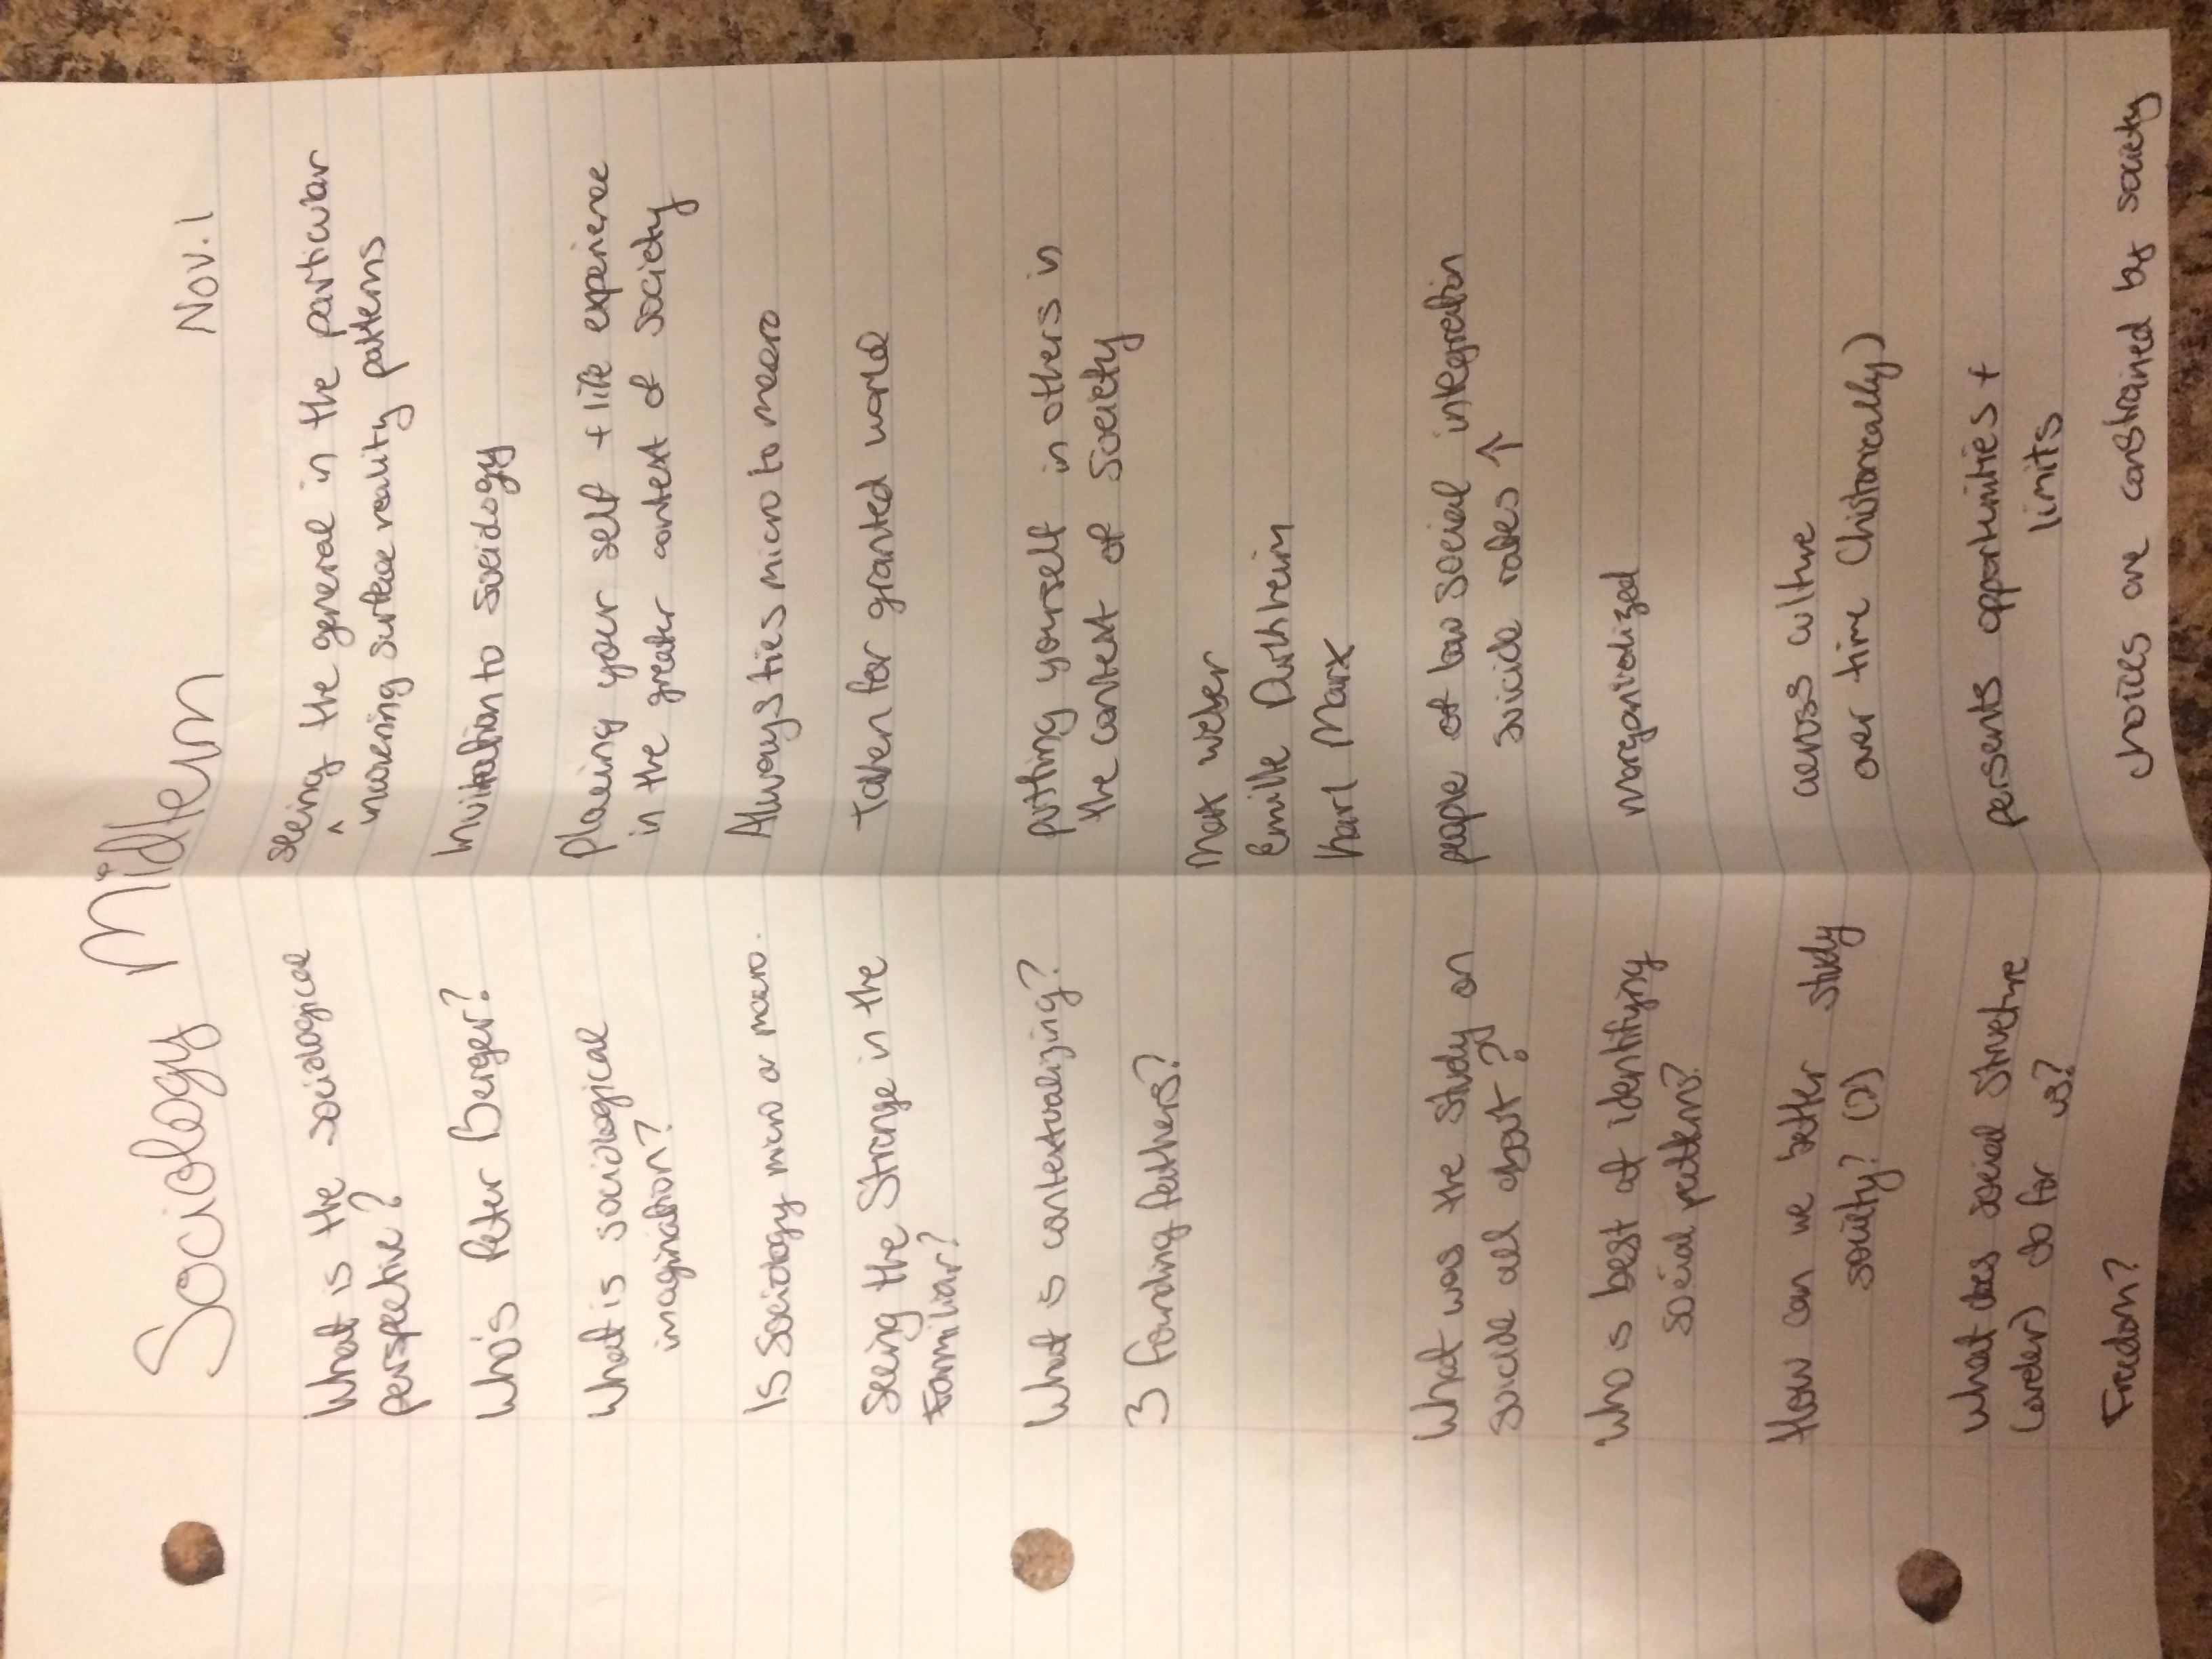 Sociology Midterm
Nov. 1
What is the sociological
perspective?
seeing the general in the particular
^
morening surface reality patterns
Who's Peter Berger?
Invitation to sociology
What is sociological
imagination?
Placing your self + life experience
in the greater context of society
Is Sociology micro or macro.
Always ties micro to macro
Seeing the Strange in the
Familiar?
Taken for granted world
What is contextualizing?
putting yourself in others in
the context of Society
3 founding fathers?
Max weber
Emille Durkheim
Karl Marx
What was the study on
suicide all about?
people of low social integration
suicide rates ↑
who is best at identifying
social patterns?
marganialized
How can we better study
society? (2)
across culture
over time (historically)
What does social structure
(order) do for us?
persents opportunities +
limits
Freedom?
choices are constrained by society